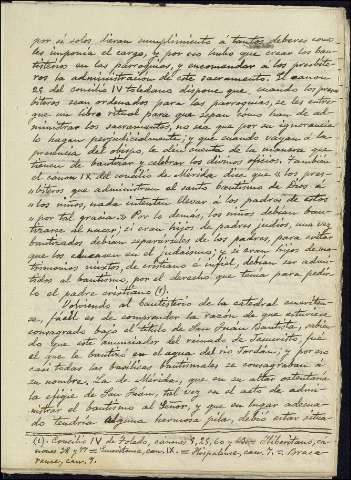 por si solos dieran cumplimiento á tantos deberes como
les imponia el cargo, y por eso hubo que crear los bau-
tisterios en las parroquias, y encomendar á los presbíte-
ros la administración de este sacramento. El canon
25 del concilio IV toledano dispone que, cuando los pres-
bíteros sean ordenados para las parroquias, se les entre-
gue un libro ritual para que sepan como han de ad-
ministrar los sacramentos, no sea que por su ignorancia
lo hagan perjudicialmente; y que cuando vayan á la
presencia del obispo, le den cuenta de la manera que
tienen de bautizar y celebrar los divinos oficios. También
el canon IX del concilio de Mérida dice que « los pres-
» bíteros que administran el santo bautismo de Dios á
» los niños, nada intenten llevar á los padres de estos
» por tal gracia.» Por lo demás, los niños debían bau-
tizarse al nacer; si eran hijos de padres judíos, una vez
bautizados debían separárseles de los padres, para evitar
que los educasen en el judaismo; y si eran hijos de ma-
trimonios mixtos, de cristiano é infiel, debían ser admi-
tidos al bautismo, por el derecho que tenía para pedir-
lo el padre cristiano (1).
Volviendo al bautisterio de la catedral emeriten-
se, fácil es de comprender la razón de que estuviese
consagrado bajo el título de San Juan Bautista, sabien-
do que este anunciador del reinado de Jesucristo fué
el que le bautizó en el agua del río Jordán; y por eso
casi todas las basílicas bautismales se consagraban á
su nombre. La de Mérida, que en su altar ostentaría
la efigie de San Juan, tal vez en el acto de admi-
nistrar el bautismo al Señor, y que en lugar adecua-
do tendría alguna hermosa pila, debió estar situa-
(1). Concilio IV de Toledo, cánones 60 y = Iliberitano, cá-
nones = Emeritense, can. IX. = Hispalense, can. 7. = Braca-
rense, can. 7.